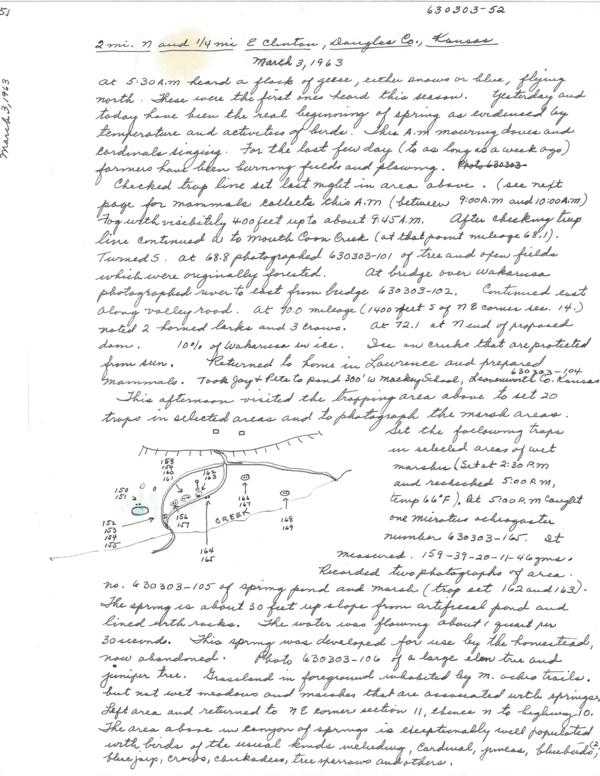 51
630303-52
March 3, 1963
2 mi. N and 1/4 mi E Clinton, Douglas Co., Kansas
March 3, 1963
At 5:30 A.M heard a flock of geese, either snows or blue, flying
north. These were the first ones heard this season. Yesterday and
today have been the real beginning of spring as evidenced by
temperature and activities of birds. This A.M mourning doves and
cardinals singing. For the last few day (to as long as a week ago)
farmers have been burning fields and plowing.
Checked trap line set last night in area above. (see next
page for mammals collects this A.M (between 9:00 A.M and 10:00 A.M)
Fog with visibility 400 feet up to about 9:45 A.M. After checking trap
line continued to Mouth Coon Creek (at that point mileage 68.1).
Turned S. at 68.8 photographed 630303-101 of tree and open fields
which were originally forested. At bridge over Wakarusa
photographed river to east from bridge 630303-102. Continued east
along valley road. At 70.0 mileage (1400 feet S of NE corner sec. 14.)
noted 2 horned larks and 3 crows. At 72.1 at N end of proposed
dam. 10% of Wakarusa in ice. Ice on creeks that are protected
from sun. Returned to home in Lawrence and prepared
630303-104
mammals. Took Jay & Pete to pond 300' W Mackey School, Leavenworth Co. Kansas
This afternoon visited the trapping area above to set 20
traps in selected areas and to photograph the marsh areas.
Set the following traps
in selected areas of wet
marshes (Set at 2:30 P.M
and rechecked 5:00 P.M,
temp 66°F). At 5:00 P.M caught
one Microtus ochrogaster
number 630303-165. It
measured. 159-39-20-11-46 gms.
Recorded two photographs of area.
158
159
160
161
162
163
150
151
152
153
154
155
156
157
166
167
168
169
CREEK
164
165
no. 630303-105 of spring pond and marsh (trap set 162 and 163).
The spring is about 30 feet up slope from artificial pond and
lined with rocks. The water was flowing about 1 quart per
30 seconds. This spring was developed for use by the homestead,
now abandoned. Photo 630303-106 of a large elm tree and
juniper tree. Grassland in foreground inhabited by M. ochro trails.
but not wet meadows and marshes that are associated with springs.
Left area and returned to NE corner section 11, thence N to highway 10.
The area above in canyon of springs is exceptionally well populated
with birds of the usual kinds including, Cardinal, juncos, bluebirds,
blue jay, crows, chickadees, tree sparrows and others.